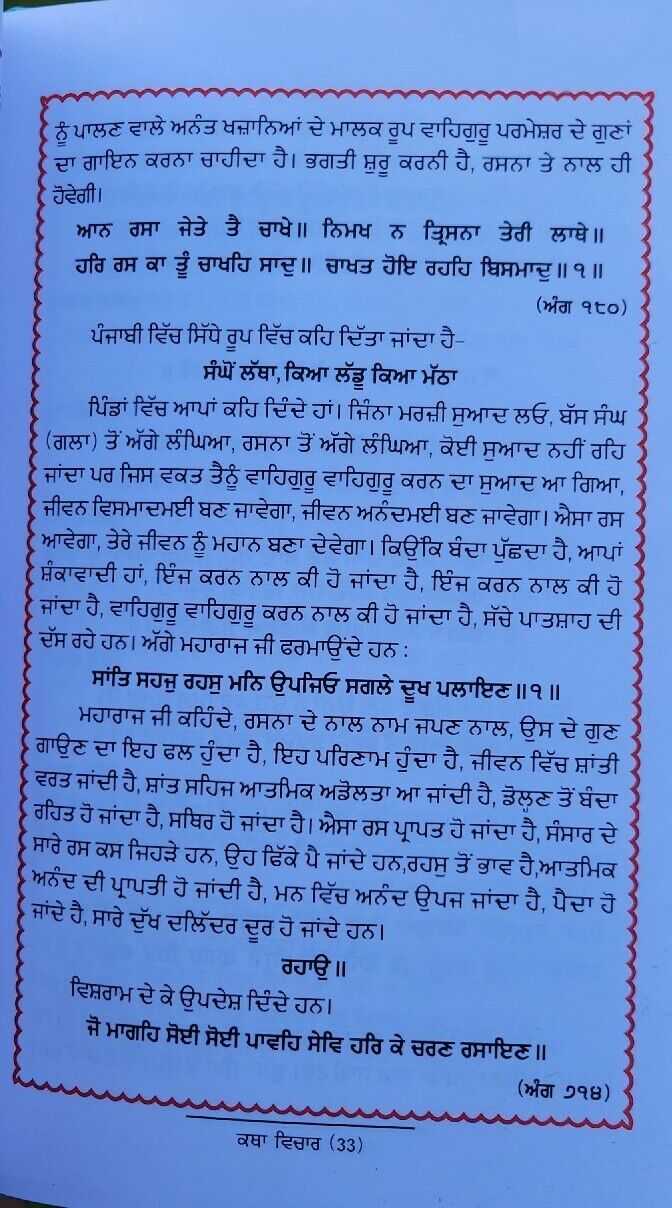 ਨੂੰ ਪਾਲਣ ਵਾਲੇ ਅਨੰਤ ਖਜ਼ਾਨਿਆਂ ਦੇ ਮਾਲਕ ਰੂਪ ਵਾਹਿਗੁਰੂ ਪਰਮੇਸ਼ਰ ਦੇ ਗੁਣਾਂ
ਦਾ ਗਾਇਨ ਕਰਨਾ ਚਾਹੀਦਾ ਹੈ। ਭਗਤੀ ਸ਼ੁਰੂ ਕਰਨੀ ਹੈ, ਰਸਨਾ ਤੇ ਨਾਲ ਹੀ
ਹੋਵੇਗੀ।
ਆਨ ਰਸਾ ਜੇਤੇ ਤੈ ਚਾਖੇ॥ ਨਿਮਖ ਨ ਤ੍ਰਿਸਨਾ ਤੇਰੀ ਲਾਥੇ॥
ਹਰਿ ਰਸ ਕਾ ਤੂੰ ਚਾਖਹਿ ਸਾਦੁ॥ ਚਾਖਤ ਹੋਇ ਰਹਹਿ ਬਿਸਮਾਦੁ॥੧॥
(ਅੰਗ ੧੮੦)
ਪੰਜਾਬੀ ਵਿੱਚ ਸਿੱਧੇ ਰੂਪ ਵਿੱਚ ਕਹਿ ਦਿੱਤਾ ਜਾਂਦਾ ਹੈ-
ਸੰਘੋਂ ਲੱਥਾ, ਕਿਆ ਲੱਡੂ ਕਿਆ ਮੱਠਾ
ਪਿੰਡਾਂ ਵਿੱਚ ਆਪਾਂ ਕਹਿ ਦਿੰਦੇ ਹਾਂ। ਜਿੰਨਾ ਮਰਜ਼ੀ ਸੁਆਦ ਲਓ, ਬੱਸ ਸੰਘ
(ਗਲਾ) ਤੋਂ ਅੱਗੇ ਲੰਘਿਆ, ਰਸਨਾ ਤੋਂ ਅੱਗੇ ਲੰਘਿਆ, ਕੋਈ ਸੁਆਦ ਨਹੀਂ ਰਹਿ
ਜਾਂਦਾ ਪਰ ਜਿਸ ਵਕਤ ਤੈਨੂੰ ਵਾਹਿਗੁਰੂ ਵਾਹਿਗੁਰੂ ਕਰਨ ਦਾ ਸੁਆਦ ਆ ਗਿਆ,
ਜੀਵਨ ਵਿਸਮਾਦਮਈ ਬਣ ਜਾਵੇਗਾ, ਜੀਵਨ ਅਨੰਦਮਈ ਬਣ ਜਾਵੇਗਾ। ਐਸਾ ਰਸ
ਆਵੇਗਾ, ਤੇਰੇ ਜੀਵਨ ਨੂੰ ਮਹਾਨ ਬਣਾ ਦੇਵੇਗਾ। ਕਿਉਂਕਿ ਬੰਦਾ ਪੁੱਛਦਾ ਹੈ, ਆਪਾਂ
ਸ਼ੰਕਾਵਾਦੀ ਹਾਂ, ਇੰਜ ਕਰਨ ਨਾਲ ਕੀ ਹੋ ਜਾਂਦਾ ਹੈ, ਇੰਜ ਕਰਨ ਨਾਲ ਕੀ ਹੋ
ਜਾਂਦਾ ਹੈ, ਵਾਹਿਗੁਰੂ ਵਾਹਿਗੁਰੂ ਕਰਨ ਨਾਲ ਕੀ ਹੋ ਜਾਂਦਾ ਹੈ, ਸੱਚੇ ਪਾਤਸ਼ਾਹ ਦੀ
ਦੱਸ ਰਹੇ ਹਨ। ਅੱਗੇ ਮਹਾਰਾਜ ਜੀ ਫਰਮਾਉਂਦੇ ਹਨ :
ਸਾਂਤਿ ਸਹਜੁ ਰਹਸੁ ਮਨਿ ਉਪਜਿਓ ਸਗਲੇ ਦੂਖ ਪਲਾਇਣ॥੧॥
ਮਹਾਰਾਜ ਜੀ ਕਹਿੰਦੇ, ਰਸਨਾ ਦੇ ਨਾਲ ਨਾਮ ਜਪਣ ਨਾਲ, ਉਸ ਦੇ ਗੁਣ
ਗਾਉਣ ਦਾ ਇਹ ਫਲ ਹੁੰਦਾ ਹੈ, ਇਹ ਪਰਿਣਾਮ ਹੁੰਦਾ ਹੈ, ਜੀਵਨ ਵਿੱਚ ਸ਼ਾਂਤੀ
ਵਰਤ ਜਾਂਦੀ ਹੈ, ਸ਼ਾਂਤ ਸਹਿਜ ਆਤਮਿਕ ਅਡੋਲਤਾ ਆ ਜਾਂਦੀ ਹੈ, ਡੋਲ੍ਹਣ ਤੋਂ ਬੰਦਾ
ਰਹਿਤ ਹੋ ਜਾਂਦਾ ਹੈ, ਸਥਿਰ ਹੋ ਜਾਂਦਾ ਹੈ। ਐਸਾ ਰਸ ਪ੍ਰਾਪਤ ਹੋ ਜਾਂਦਾ ਹੈ, ਸੰਸਾਰ ਦੇ
ਸਾਰੇ ਰਸ ਕਸ ਜਿਹੜੇ ਹਨ, ਉਹ ਫਿੱਕੇ ਪੈ ਜਾਂਦੇ ਹਨ,ਰਹਸੁ ਤੋਂ ਭਾਵ ਹੈ,ਆਤਮਿਕ
ਅਨੰਦ ਦੀ ਪ੍ਰਾਪਤੀ ਹੋ ਜਾਂਦੀ ਹੈ, ਮਨ ਵਿੱਚ ਅਨੰਦ ਉਪਜ ਜਾਂਦਾ ਹੈ, ਪੈਦਾ ਹੋ
ਜਾਂਦੇ ਹੈ, ਸਾਰੇ ਦੁੱਖ ਦਲਿੱਦਰ ਦੂਰ ਹੋ ਜਾਂਦੇ ਹਨ।
ਰਹਾਉ॥
ਵਿਸ਼ਰਾਮ ਦੇ ਕੇ ਉਪਦੇਸ਼ ਦਿੰਦੇ ਹਨ।
ਜੋ ਮਾਗਹਿ ਸੋਈ ਸੋਈ ਪਾਵਹਿ ਸੇਵਿ ਹਰਿ ਕੇ ਚਰਣ ਰਸਾਇਣ॥
(ਅੰਗ ੭੧੪)
ਕਥਾ ਵਿਚਾਰ (33)